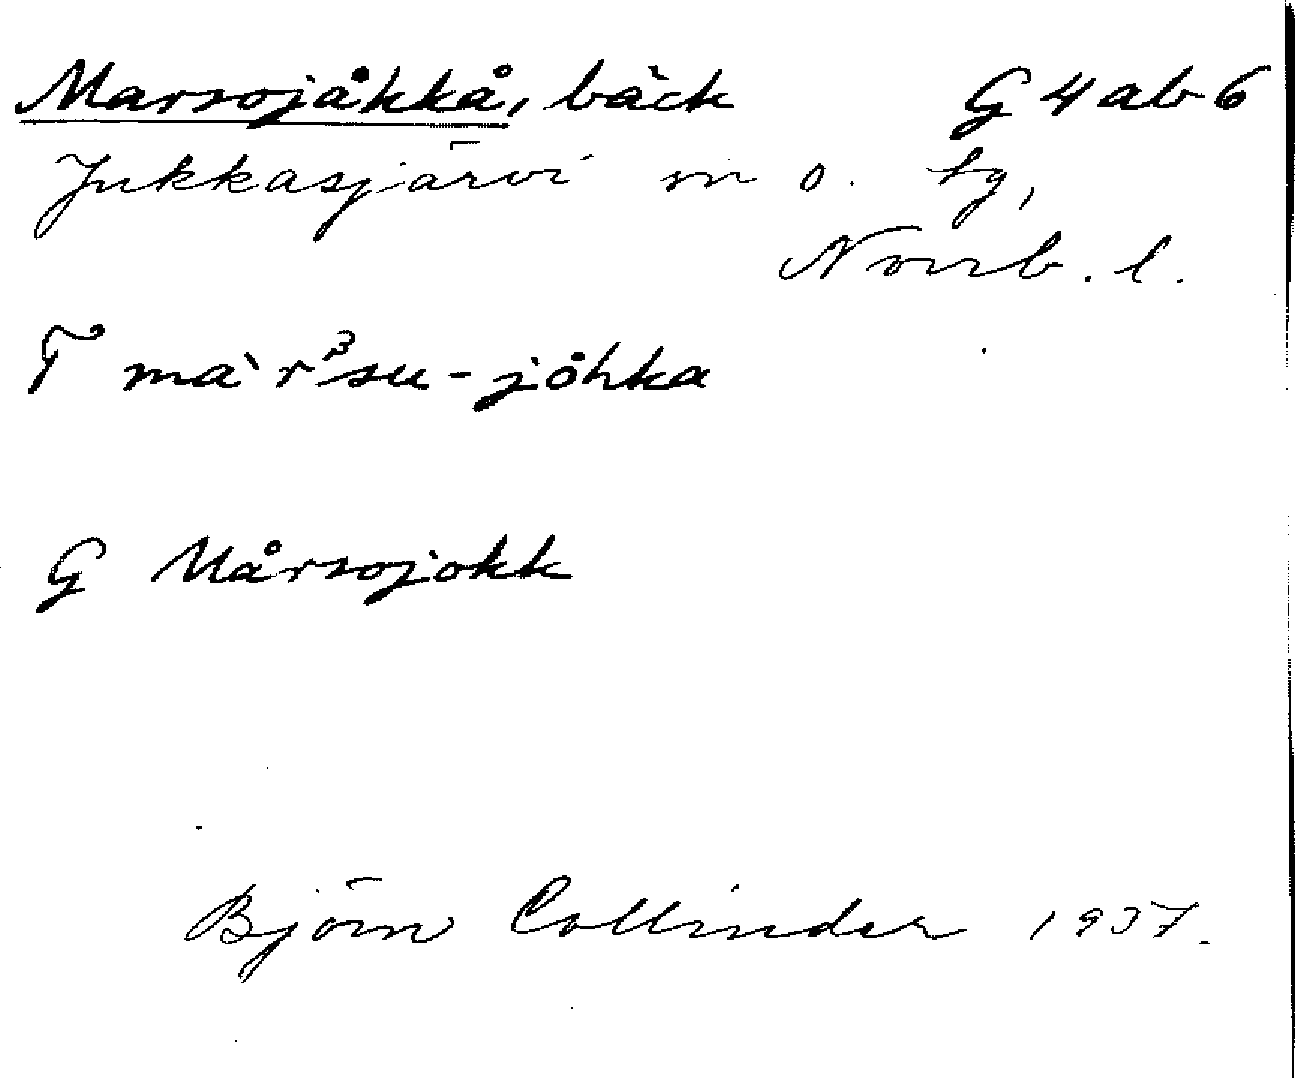 Marsojåkkå, bäck G 4 ab 6
Jukkasjärvi sn o. tg,
Norrb. l.
T ma`rᵌsu-jåhka
G Mårsojokk
Björn Collinder 1937.